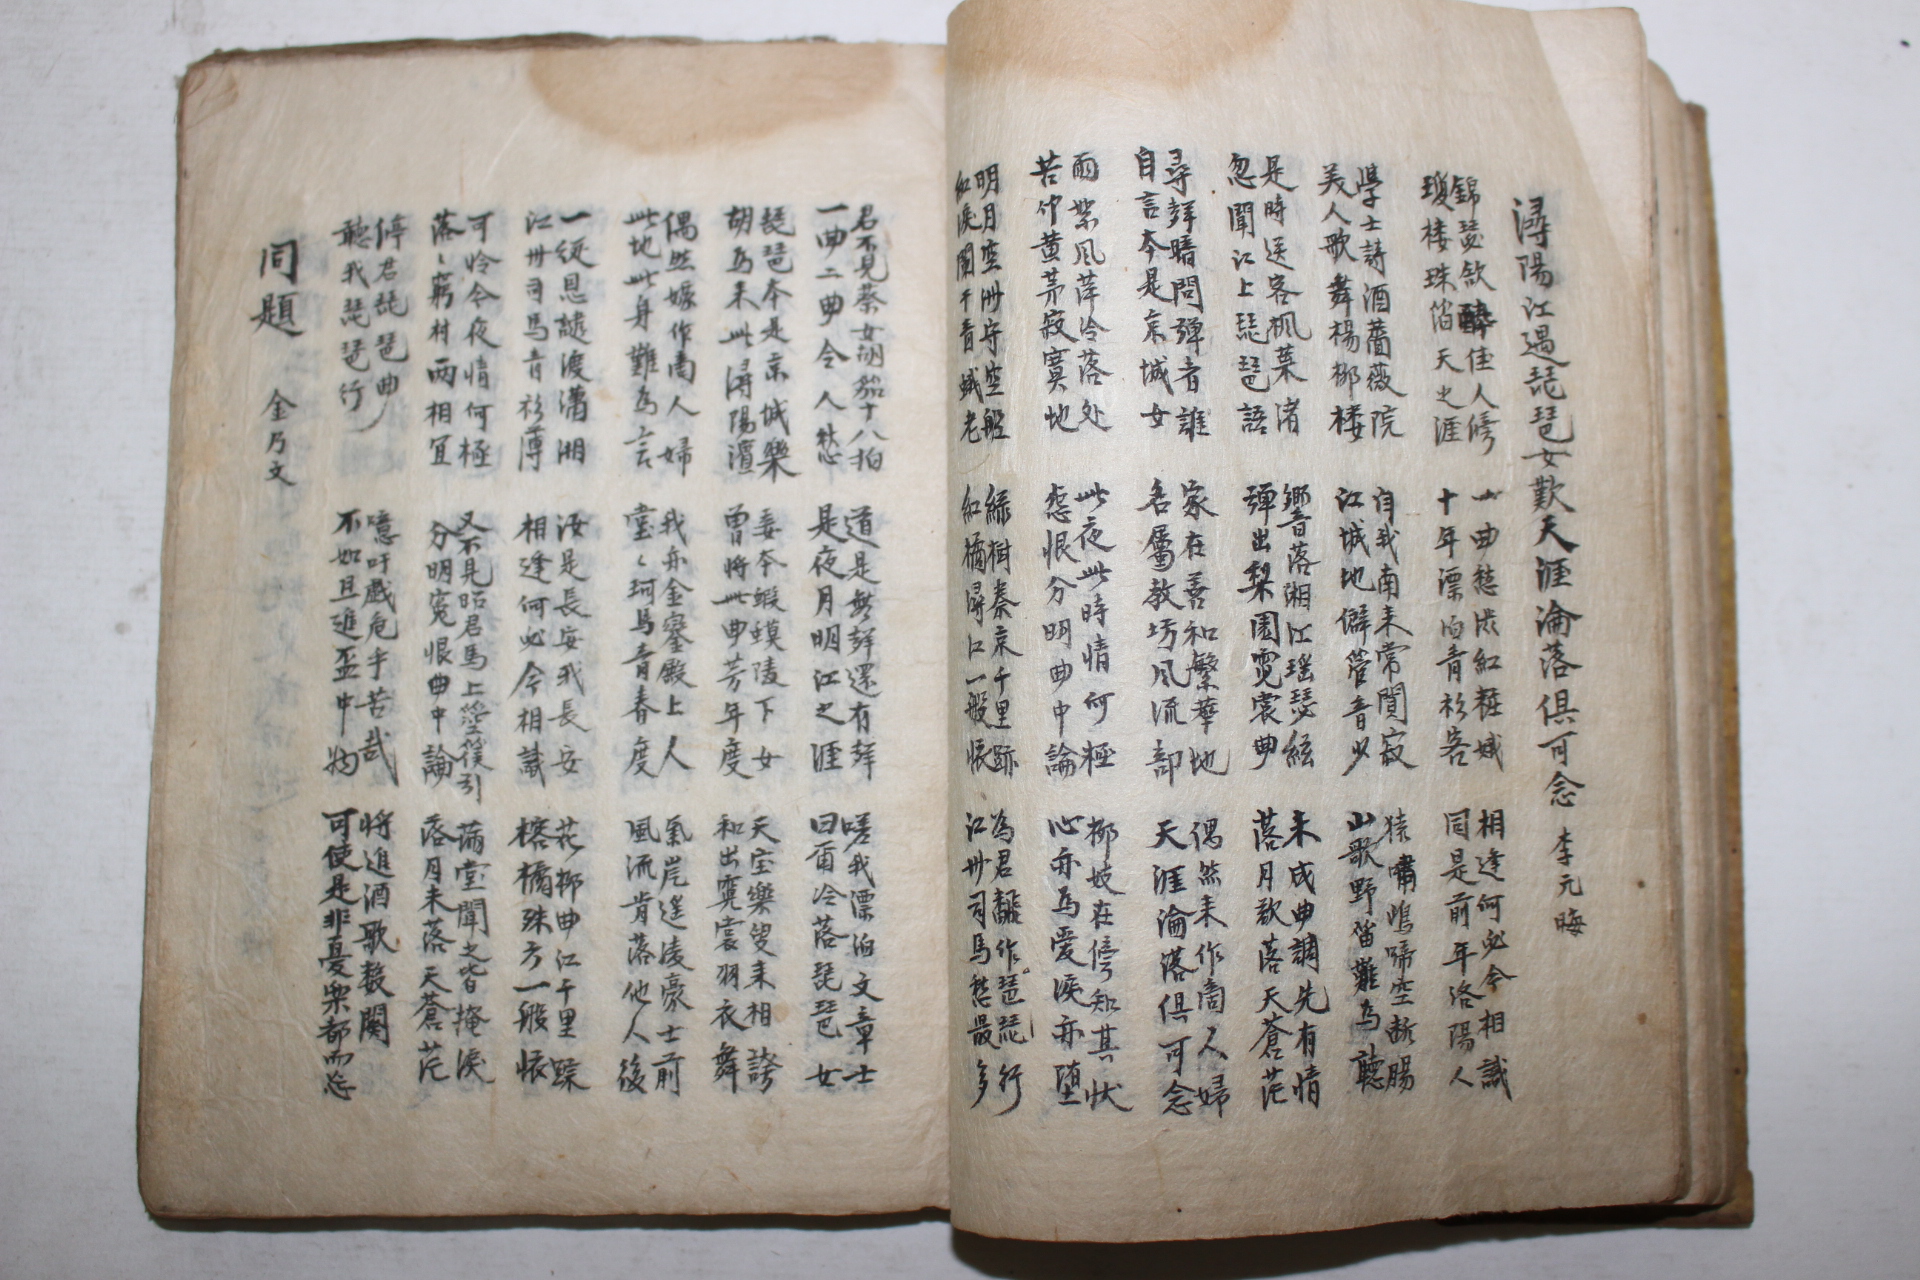 潯陽江遇琵琶女歎天涯淪落俱可念 李元晦
錦瑟欹醉佳人傍
瓊樓珠箔天之涯
一曲愁深紅粧娥
十年漂泊青衫客
相逢何必今相識
同是前年洛陽人
學士詩酒薔薇院
美人歌舞楊柳樓
自我南来常閴寂
江城地僻管音少
猿嘯鵑啼空断腸
山歌野笛難為聽
是時送客楓葉渚
忽聞江上琵琶語
響落湘江瑶瑟絃
弾出梨園霓裳曲
未成曲調先有情
落月欲落天蒼茫
尋聲暗問弾者誰
自言本是京城女
家在善和繁華地
名屬教坊風流部
偶然来作商人婦
天涯淪落俱可念
雨絮風萍冷落处
苦竹黄茅寂寞地
此夜此時情何極
怨恨分明曲中論
柳妓在傍知其状
心亦為愛淚亦堕
明月空洲守空船
紅淚闌干青蛾老
綠樹秦京千里跡
紅橘潯江一般恨
為君翻作琶琵行
江州司馬愁最多
君不見蔡女胡笳十八拍
一曲二曲令人愁
道是無聲還有聲
是夜月明江之涯
嗟我漂泊文章士
曰爾冷落琵琶女
琵琶本是京城樂
胡為来此潯陽濱
妾本蝦蟆陵下女
曾将此曲芳年度
天宝樂叟来相誇
和出霓裳羽衣舞
偶然嫁作商人婦
此地此身難為言
我亦金鑾殿上人
堂〻珂馬青春度
氣岸遥凌豪士前
風流肯落他人後
一從恩譴渡瀟湘
江州司馬青衫薄
汝是長安我長安
相逢何必今相識
花柳曲江千里蹤
榕橘殊方一般恨
可怜今夜情何極
落〻窮村兩相宜
又不見昭君馬上箜篌引
分明寃恨曲中論
滿堂聞之皆掩淚
落月未落天蒼茫
停君琵琶曲
聽我琵琶行
噫吁戲危乎苦哉
不如且進盃中物
将進酒歌数闋
可使是非憂樂都兩忘
同題 金乃文